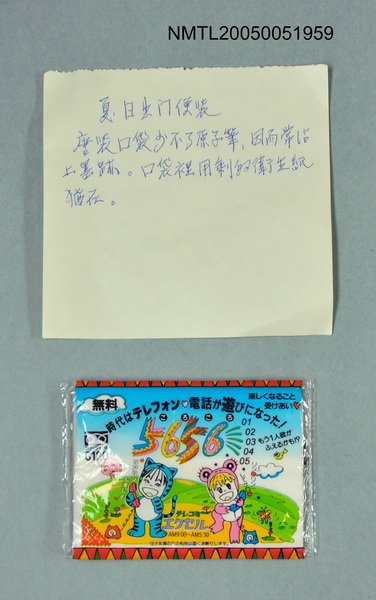 NMTL20050051959
夏日出门便裝
唐裝口袋少不了原子筆,因而常沾
上墨跡。口袋裡用剩的衛生紙
猶在。
無料
楽しくなること
受けあい
時代はテレフォン♡電話が遊びになった!
ころころ
5656
01
02
03 もう1人彼が
04 ふえるかも!?
05
テレコミ
エクセル
AM9:00~AM5:30